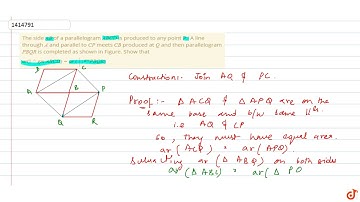 1414791
The side of a parallelogram is produced to any point P. A line
through A and parallel to CP meets CB produced at Q and then parallelogram
PBQR is completed as shown in figure. Show that
D C
A B P
Q R
Construction:- Join AQ & PC.
Proof:- Δ ACQ & Δ APQ are on the
same base and b/w same ||
i.e AQ & CP
So, they must have equal area.
ar(ACQ) = ar(APQ)
ar(Δ ABQ) on both side
ar(Δ ABC) = ar(Δ PQ